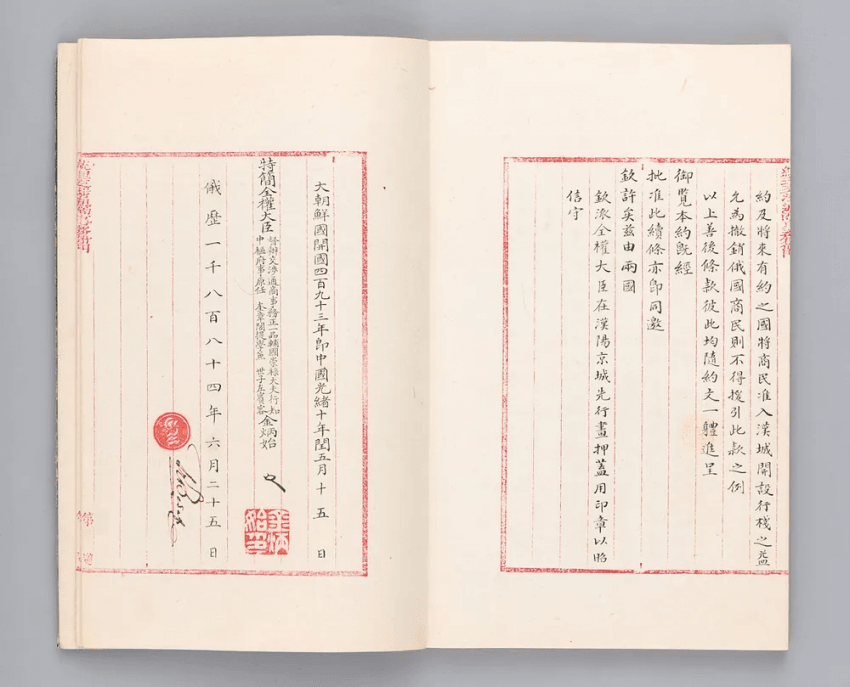 約及將來有約之國將商民准入漢城開設行棧之益
允為撤銷俄國商民則不得援引此款之例
以上善後條款彼此均隨約文一體進呈
御覽本約旣經
批准此續條亦卽同邀
欽許矣茲由兩國
欽派全權大臣在漢陽京城先行畫押蓋用印章以昭
信守
大朝鮮國開國四百九十三年卽中國光緒十年閏五月十五日
特簡全權大臣督辦交涉通商事務正一品輔國崇祿大夫行知
中樞府事原任奎章閣提學兼世子左賓客金炳始
俄歷一千八百八十四年六月二十五日
金炳
始印